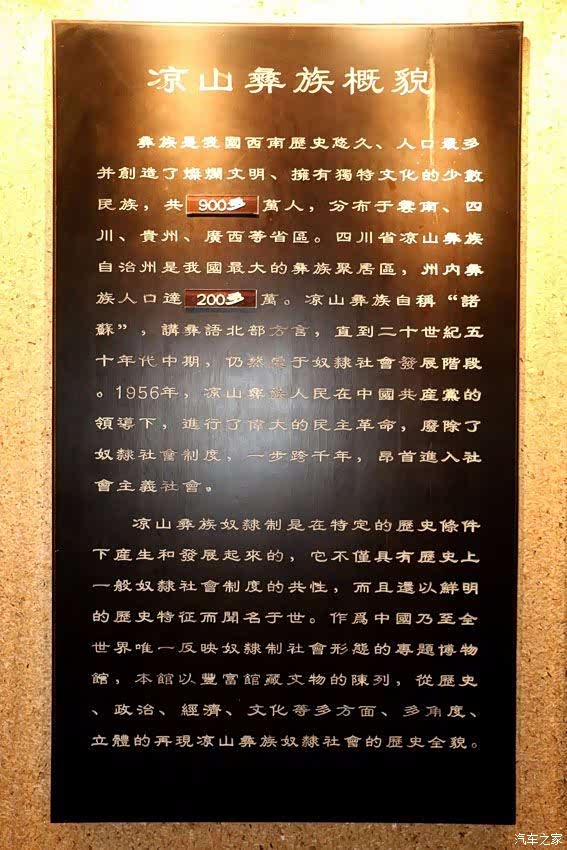 凉山彝族概貌
彝族是我國西南歷史悠久、人口最多
并創造了燦爛文明、擁有獨特文化的少數
民族，共900多萬人，分布于雲南、四
川、貴州、廣西等省區。四川省凉山彝族
自治州是我國最大的彝族聚居區，州内彝
族人口達200多萬。凉山彝族自稱“諾
蘇”，講彝語北部方言，直到二十世紀五
十年代中期，仍然處于奴隸社會發展階段
。1956年，凉山彝族人民在中國共産黨的
領導下，進行了偉大的民主革命，廢除了
奴隸社會制度，一步跨千年，昂首進入社
會主義社會。
凉山彝族奴隸制是在特定的歷史條件
下産生和發展起來的，它不僅具有歷史上
一般奴隸社會制度的共性，而且還以鮮明
的歷史特征而聞名于世。作爲中國乃至全
世界唯一反映奴隸制社會形態的專題博物
館，本館以豐富館藏文物的陳列，從歷史
、政治、經濟、文化等多方面、多角度、
立體的再現凉山彝族奴隸社會的歷史全貌。
汽车之家